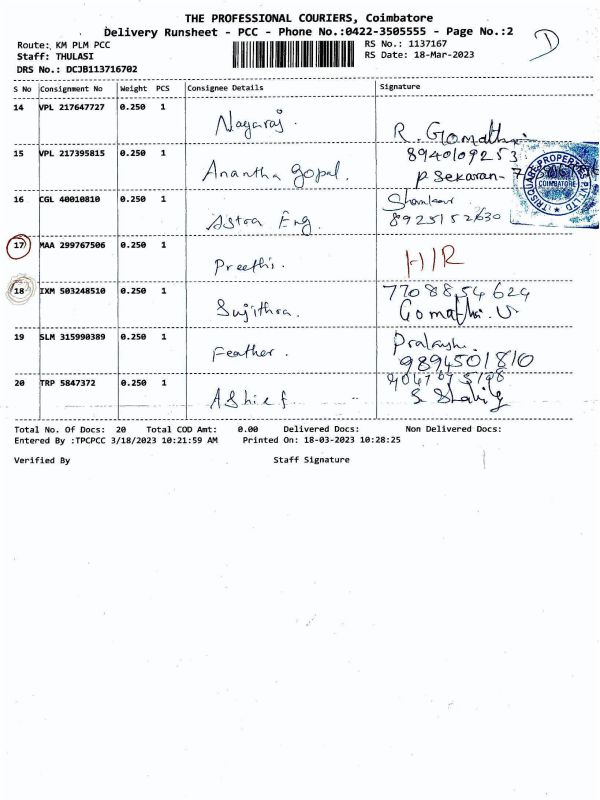 THE PROFESSIONAL COURIERS, Coimbatore
Delivery Runsheet - PCC - Phone No.:0422-3505555 - Page No.:2
D
Route: KM PLM PCC
RS No.: 1137167
Staff: THULASI
RS Date: 18-Mar-2023
DRS No.: DCJB113716702
S No Consignment No Weight PCS Consignee Details Signature
14 VPL 217647727 0.250 1 Nagaraj. R. Gomathi
15 VPL 217395815 0.250 1 Anantha gopal. 8940109253
P Sekaran-
TRISQUARE PROPERTIES PVT LTD
COIMBATORE
16 CGL 40010810 0.250 1 Astra Eng.
8925152630
17 MAA 299767506 0.250 1 Preethi. H/R
18 IXM 503248510 0.250 1 Sujithra. 7708854624
Gomathi. V
19 SLM 315990389 0.250 1 Feather.
9894501810
20 TRP 5847372 0.250 1 AShief
Total No. Of Docs: 20 Total COD Amt: 0.00 Delivered Docs: Non Delivered Docs:
Entered By :TPCPCC 3/18/2023 10:21:59 AM Printed On: 18-03-2023 10:28:25
Verified By Staff Signature